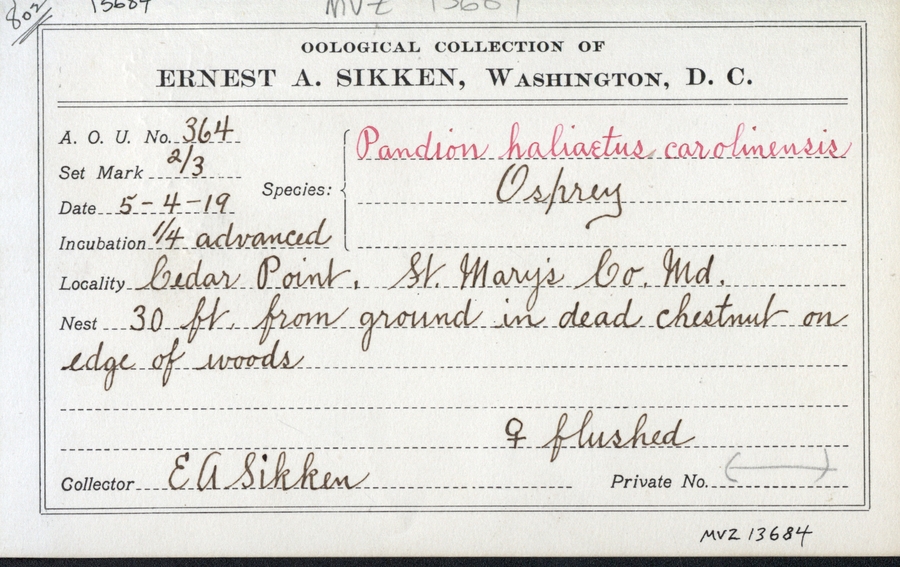 802 13684 MVZ 13684
OOLOGICAL COLLECTION OF
ERNEST A. SIKKEN, WASHINGTON, D. C.
A. O. U. No. 364
Set Mark 2/3
Date 5-4-19
Incubation 1/4 advanced
Species: Pandion haliaetus carolinensis
Osprey
Locality Cedar Point, St. Mary's Co. Md.
Nest 30 ft. from ground in dead chestnut on
edge of woods
♀ flushed
Collector E A Sikken
Private No.
MVZ 13684